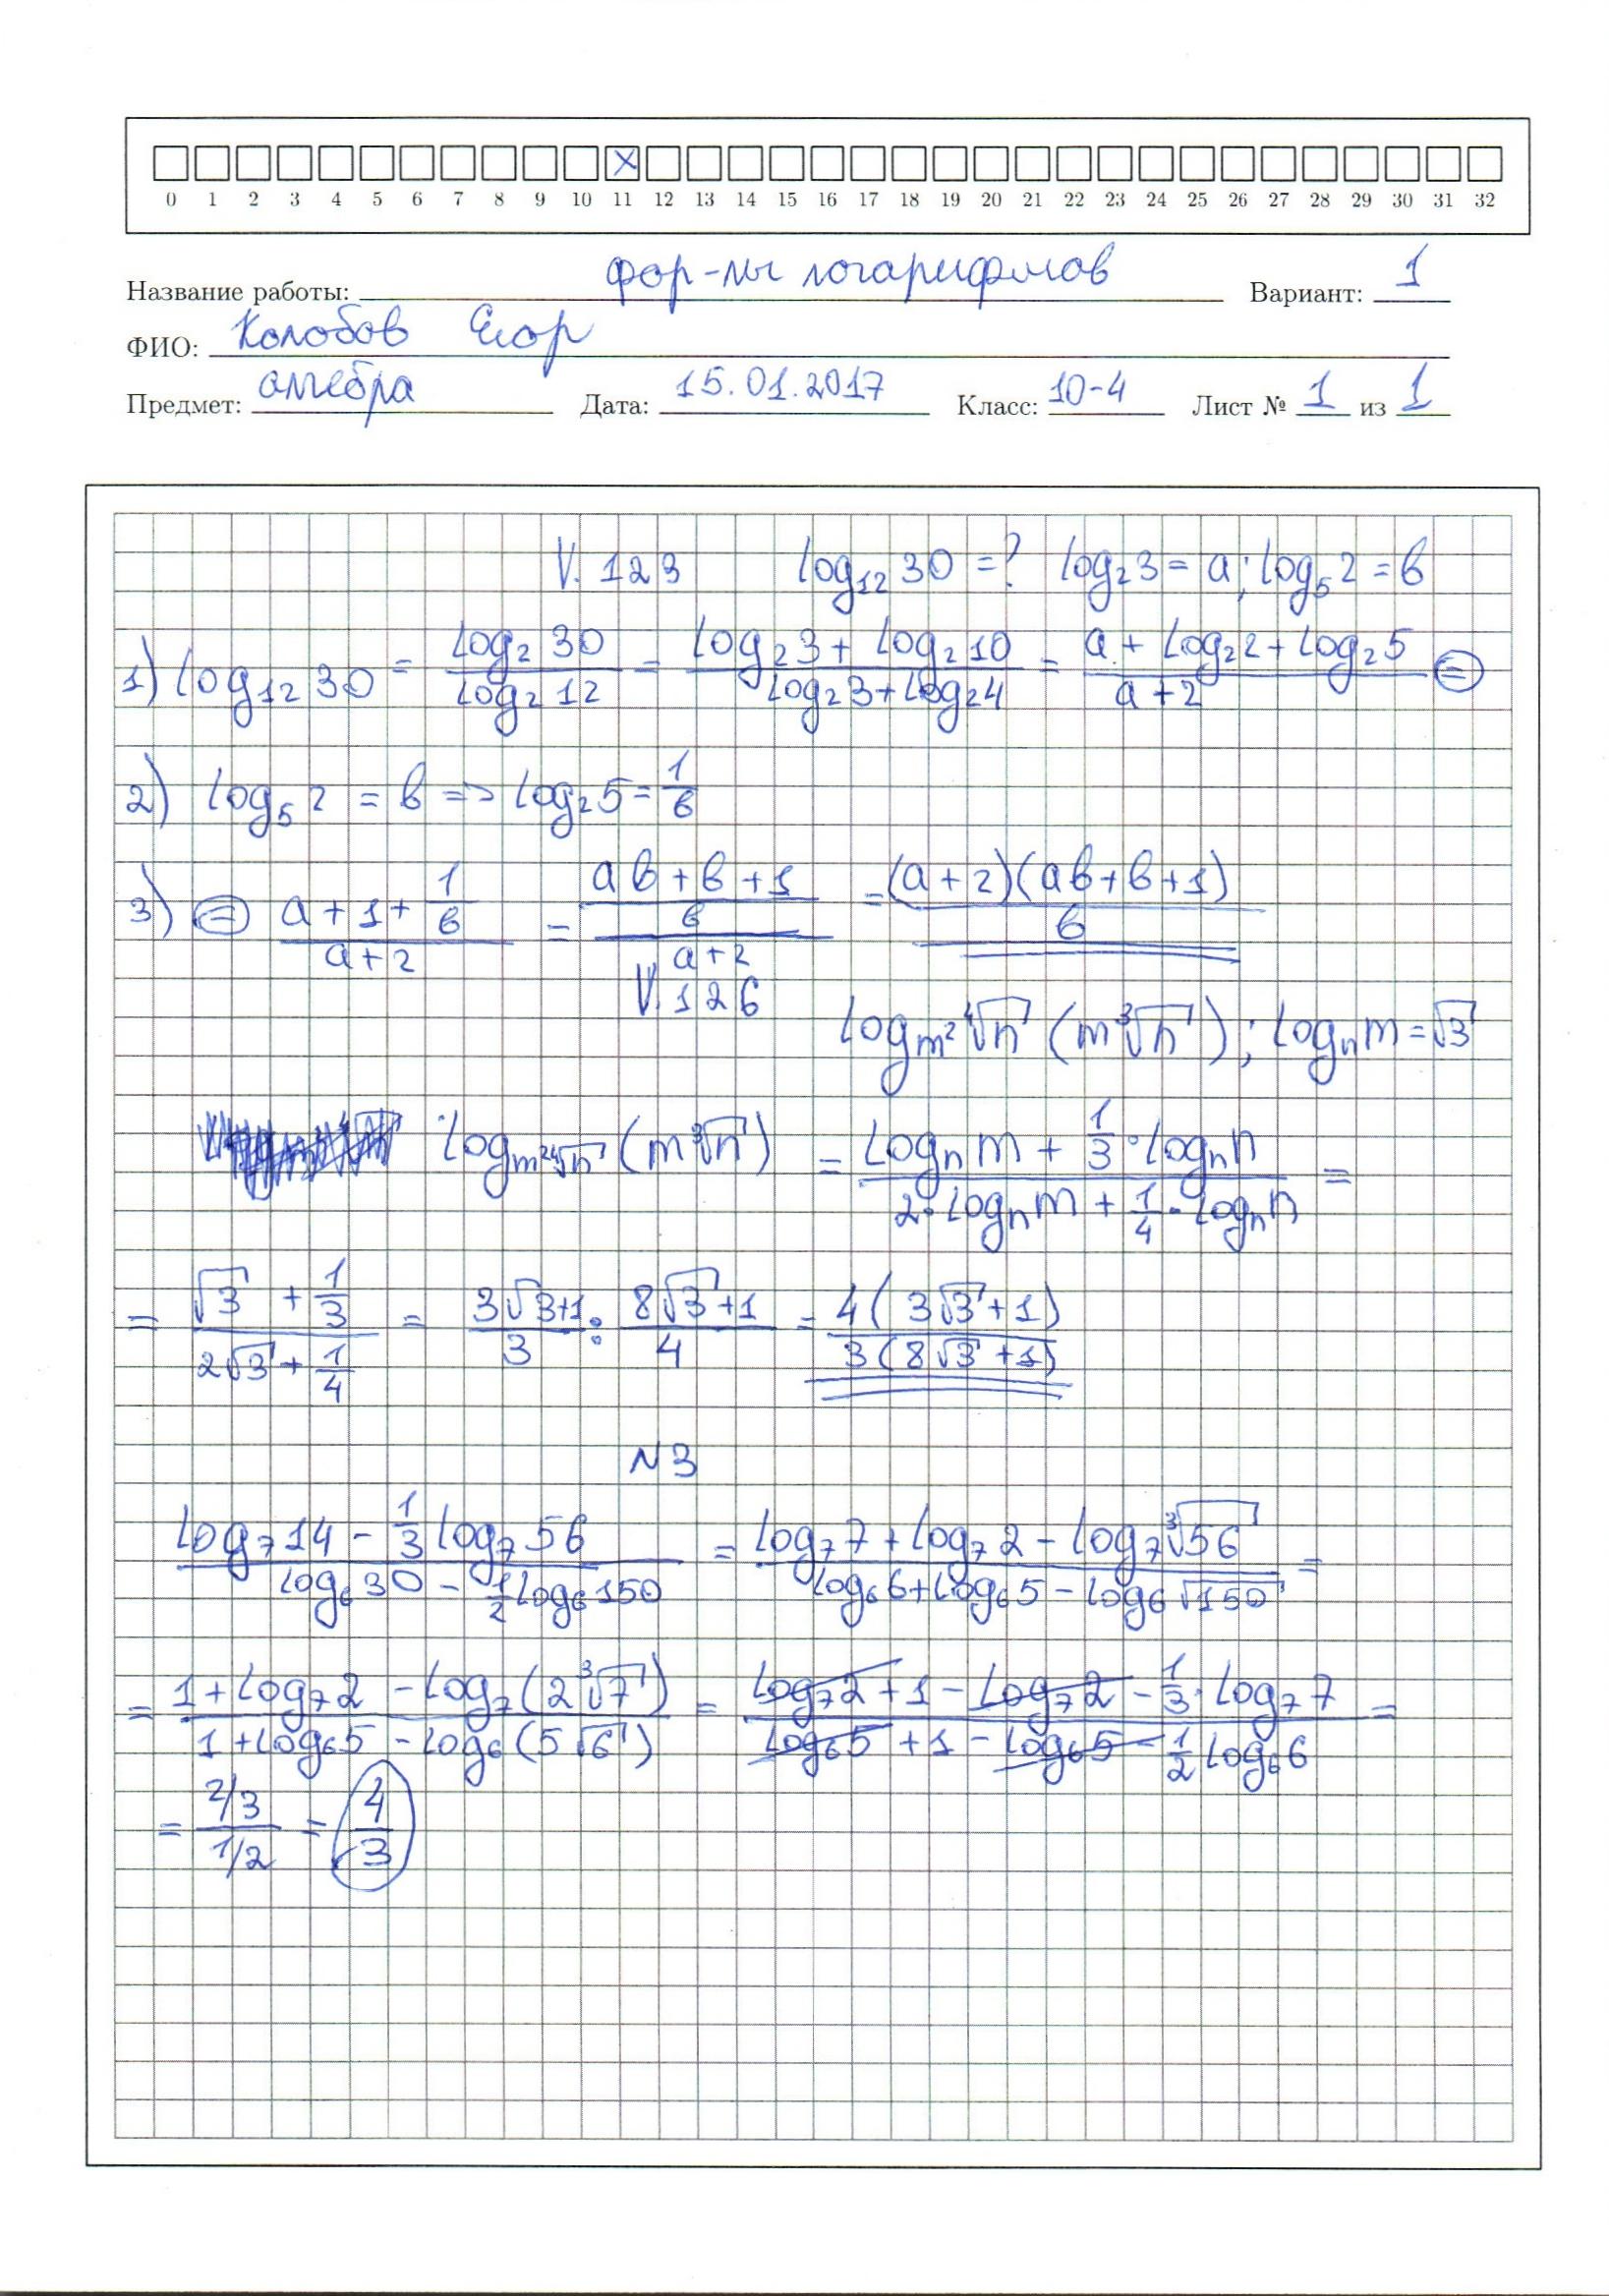 0 1 2 3 4 5 6 7 8 9 10 11 12 13 14 15 16 17 18 19 20 21 22 23 24 25 26 27 28 29 30 31 32
Название работы: фор-лы логарифмов Вариант: 1
ФИО: Колобов Егор
Предмет: алгебра Дата: 15.01.2017 Класс: 10-4 Лист № 1 из 1
V. 123 log₁₂ 30 = ? log₂ 3 = a; log₅ 2 = в
1) log₁₂ 30 = (log₂ 30)/(log₂ 12) = (log₂ 3 + log₂ 10)/(log₂ 3 + log₂ 4) = (a + log₂ 2 + log₂ 5)/(a + 2) ⊜
2) log₅ 2 = в => log₂ 5 = 1/в
3) ⊜ (a + 1 + 1/в)/(a + 2) = ((aв + в + 1)/в)/(a + 2) = ((a + 2)(aв + в + 1))/в
V. 126
log_{m² ⁴√n} (m ³√n); logₙ m = √3
log_{m² ⁴√n} (m ³√n) = (logₙ m + 1/3 · logₙ n)/(2 · logₙ m + 1/4 · logₙ n) =
= (√3 + 1/3)/(2√3 + 1/4) = (3√3+1)/3 : (8√3+1)/4 = (4(3√3+1))/(3(8√3+1))
N3
(log₇ 14 − 1/3 log₇ 56)/(log₆ 30 − 1/2 log₆ 150) = (log₇ 7 + log₇ 2 − log₇ ³√56)/(log₆ 6 + log₆ 5 − log₆ √150) =
= (1 + log₇ 2 − log₇ (2 ³√7))/(1 + log₆ 5 − log₆ (5 √6)) = (log₇ 2 + 1 − log₇ 2 − 1/3 · log₇ 7)/(log₆ 5 + 1 − log₆ 5 − 1/2 log₆ 6) =
= (2/3)/(1/2) = 4/3